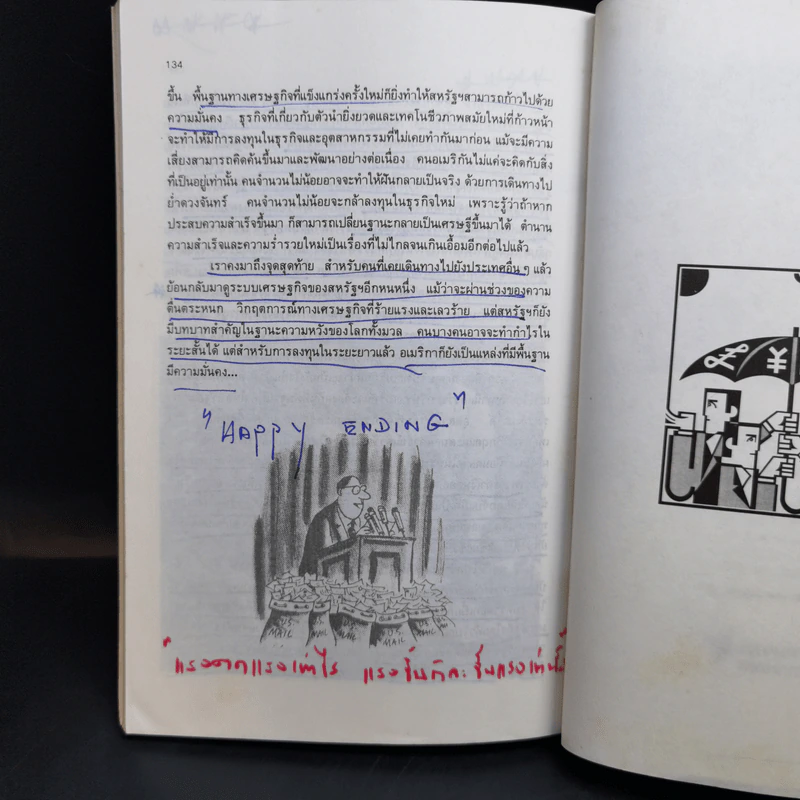 134
ขึ้น พื้นฐานทางเศรษฐกิจที่แข็งแกร่งครั้งใหม่ก็ยิ่งทำให้สหรัฐฯสามารถก้าวไปด้วย
ความมั่นคง ธุรกิจที่เกี่ยวกับตัวนำยิ่งยวดและเทคโนชีวภาพสมัยใหม่ที่ก้าวหน้า
จะทำให้มีการลงทุนในธุรกิจและอุตสาหกรรมที่ไม่เคยทำกันมาก่อน แม้จะมีความ
เสี่ยงสามารถคิดค้นขึ้นมาและพัฒนาอย่างต่อเนื่อง คนอเมริกันไม่แค่จะคิดกับสิ่ง
ที่เป็นอยู่เท่านั้น คนจำนวนไม่น้อยอาจจะทำให้ฝันกลายเป็นจริง ด้วยการเดินทางไป
ย่ำดวงจันทร์ คนจำนวนไม่น้อยจะกล้าลงทุนในธุรกิจใหม่ เพราะรู้ว่าถ้าหาก
ประสบความสำเร็จขึ้นมา ก็สามารถเปลี่ยนฐานะกลายเป็นเศรษฐีขึ้นมาได้ ตำนาน
ความสำเร็จและความร่ำรวยใหม่เป็นเรื่องที่ไม่ไกลจนเกินเอื้อมอีกต่อไปแล้ว
เราคงมาถึงจุดสุดท้าย สำหรับคนที่เคยเดินทางไปยังประเทศอื่น ๆ แล้ว
ย้อนกลับมาดูระบบเศรษฐกิจของสหรัฐฯอีกหนหนึ่ง แม้ว่าจะผ่านช่วงของความ
ตื่นตระหนก วิกฤตการณ์ทางเศรษฐกิจที่ร้ายแรงและเลวร้าย แต่สหรัฐฯก็ยัง
มีบทบาทสำคัญในฐานะความหวังของโลกทั้งมวล คนบางคนอาจจะทำกำไรใน
ระยะสั้นได้ แต่สำหรับการลงทุนในระยะยาวแล้ว อเมริกาก็ยังเป็นแหล่งที่มีพื้นฐาน
มีความมั่นคง...
"HAPPY ENDING"
U.S. MAIL
MAIL
U.S. MAIL
¥